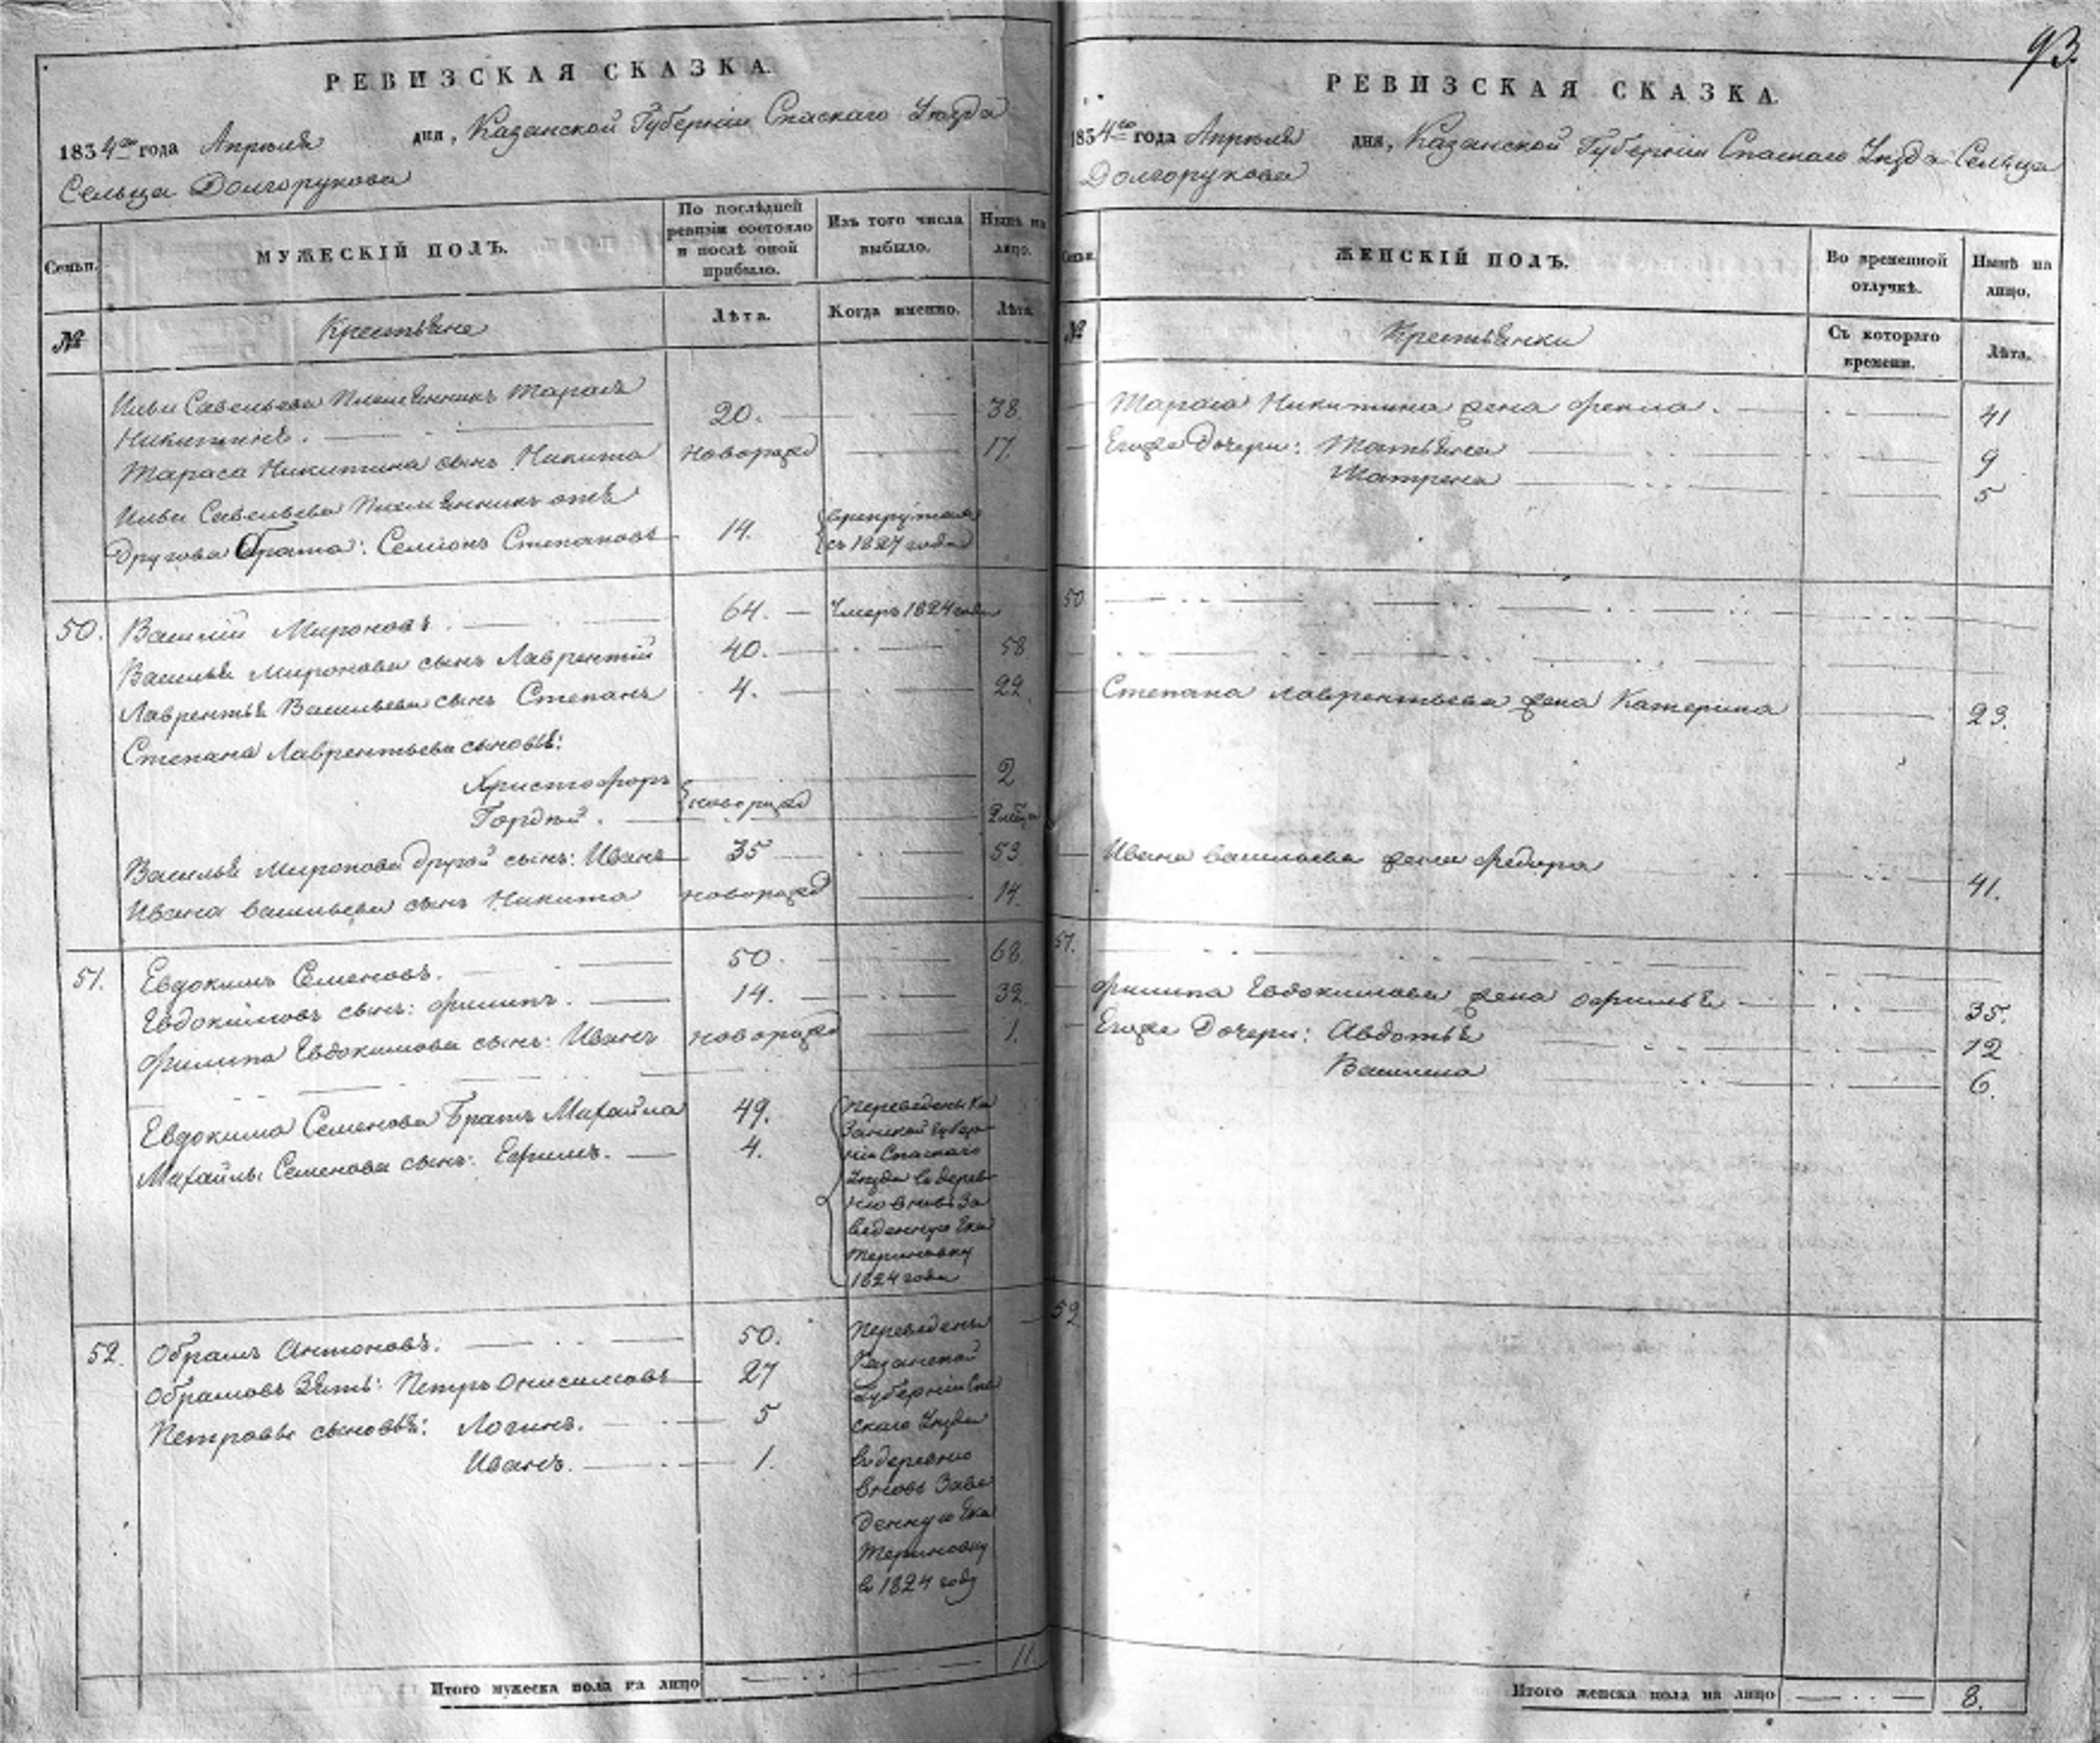 РЕВИЗСКАЯ СКАЗКА.
1834го года Апреля дня, Казанской Губернии Спаскаго Уезда
Сельца Долгорукова
Семьи.
МУЖЕСКІЙ ПОЛЪ.
По послѣдней ревизіи состояло и послѣ оной прибыло.
Изъ того числа выбыло.
Нынѣ на лицо.
№
Крестьяне
Лѣта.
Когда именно.
Лѣта.
Ильи Савельева Племянникъ Тарасъ
Никитинъ. 20. 38.
Тараса Никитина сынъ Никита новорожд 17.
Ильи Савельева Племянникъ отъ
Другова брата: Семионъ Степановъ 14. врекрутах съ 1827 года
50. Василий Мироновъ. 64. Умеръ 1824 года
Василья Миронова сынъ Лаврентий 40. 58
Лаврентья Васильева сынъ Степанъ 4. 22
Степана Лаврентьева сыновья:
Христофоръ 2
новорожд
Гордѣй.
Василья Миронова другой сынъ: Иванъ 35 53
Ивана васильева сынъ Никита новорожд 14.
51. Евдокимъ Семеновъ. 50. 68.
Евдокимовъ сынъ: Филипъ. 14. 32.
Филипа Евдокимова сынъ: Иванъ новорожд 1.
Евдокима Семенова братъ Михайла 49.
Михайлы Семенова сынъ: Ефимъ. 4.
переведены Ка
занской губер
ніи Спаскаго
Уезда в дерев
ню вновь За
веденную Ека
териновку
1824 года
52. Обрамъ Антоновъ. 50.
Обрамовъ Зять: Петръ Онисимовъ 27
Петровы сыновья: Логинъ. 5
Иванъ. 1.
Переведены
Казанской
Губерніи Спа
скаго Уезда
в деревню
вновь Заве
денную Ека
териновку
в 1824 году
Итого мужеска пола на лицо 11.
93.
РЕВИЗСКАЯ СКАЗКА.
1834го года Апреля дня, Казанской Губерніи Спаскаго Уезда Сельца
Долгорукова
Семьи.
ЖЕНСКІЙ ПОЛЪ.
Во временной отлучкѣ.
Нынѣ на лицо.
№
Крестьянки
Съ котораго времени.
Лѣта.
Тараса Никитина жена Фекла. 41
Егоже Дочери: Татьяна 9
Матрена 5
50
Степана Лаврентьева жена Катерина 23.
Ивана васильева жена Федора 41.
51.
Филипа Евдокимова жена Офимья 35.
Егоже Дочери: Авдотья 12
Василиса 6.
52
Итого женска пола на лицо 8.